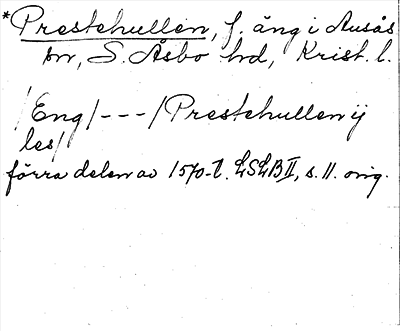 *Prestehullen, f. äng i Ausås
sn, S. Åsbo hd, Krist. l.
/Eng/---/Prestehullen ij
les/
förra delen av 1570-t. LSLB II, s. 11. orig.